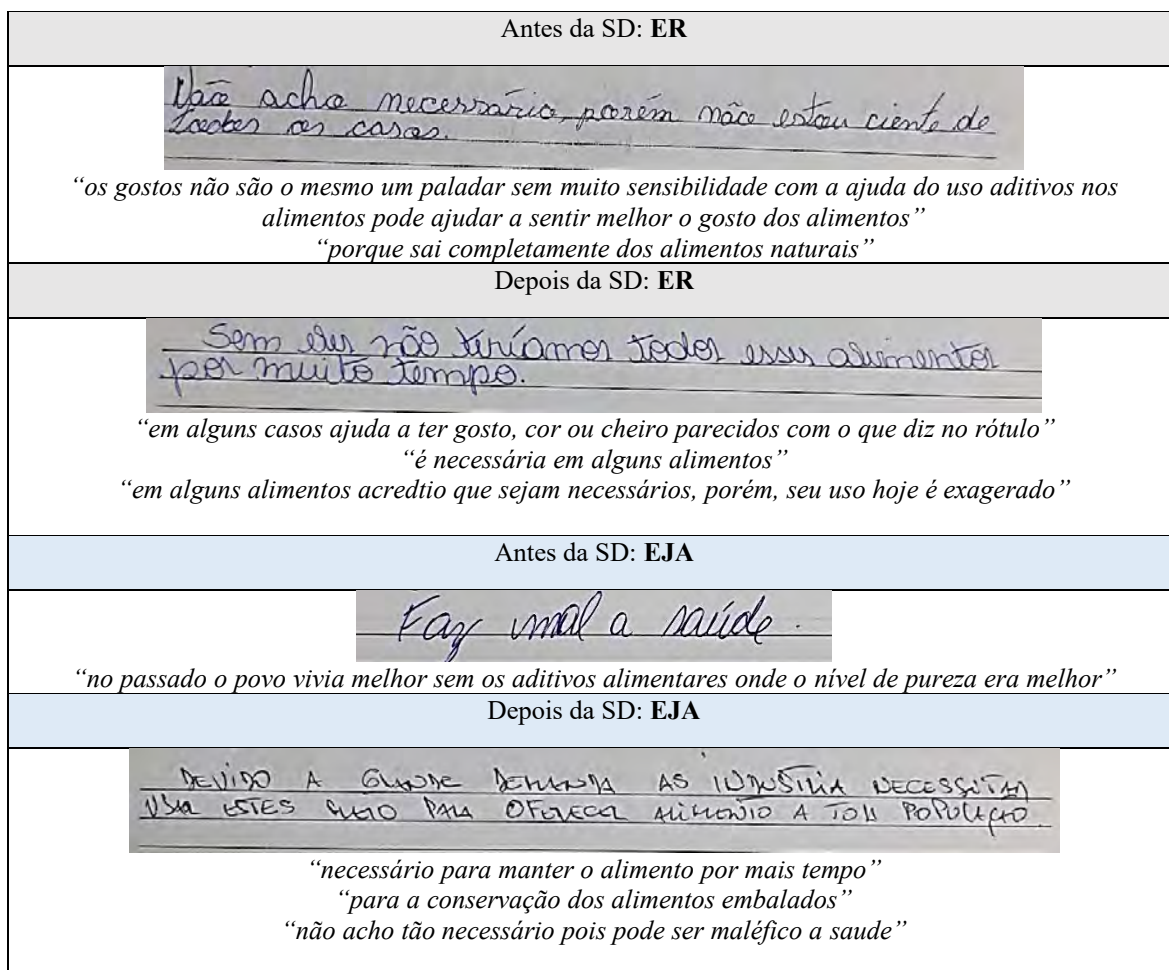 Antes da SD: ER
Não acho necessário, porém não estou ciente de
todos os casos.
“os gostos não são o mesmo um paladar sem muito sensibilidade com a ajuda do uso aditivos nos
alimentos pode ajudar a sentir melhor o gosto dos alimentos”
“porque sai completamente dos alimentos naturais”
Depois da SD: ER
Sem eles não teríamos todos esses alimentos
por muito tempo.
“em alguns casos ajuda a ter gosto, cor ou cheiro parecidos com o que diz no rótulo”
“é necessária em alguns alimentos”
“em alguns alimentos acredtio que sejam necessários, porém, seu uso hoje é exagerado”
Antes da SD: EJA
Faz mal a saúde.
“no passado o povo vivia melhor sem os aditivos alimentares onde o nível de pureza era melhor”
Depois da SD: EJA
DEVIDO A GRANDE DEMANDA AS INDUSTRIA NECESSITAM
USAR ESTES MEIO PARA OFERECER ALIMENTO A TODA POPULAÇÃO
“necessário para manter o alimento por mais tempo”
“para a conservação dos alimentos embalados”
“não acho tão necessário pois pode ser maléfico a saude”